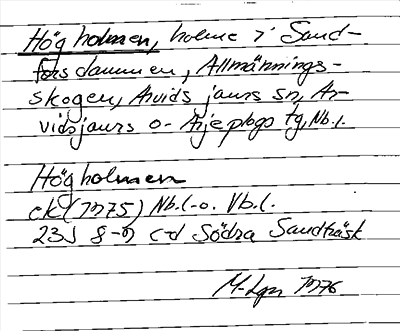 Högholmen, holme i Sand-
forsdammen, Allmännings-
skogen, Arvidsjaurs sn, Ar-
vidsjaurs o. Arjeplogs tg, Nb.l.
Högholmen
ek (1975) Nb.l. o. Vb.l.
23J 8-9 c-d Södra Sandträsk
M-Lgn 1976